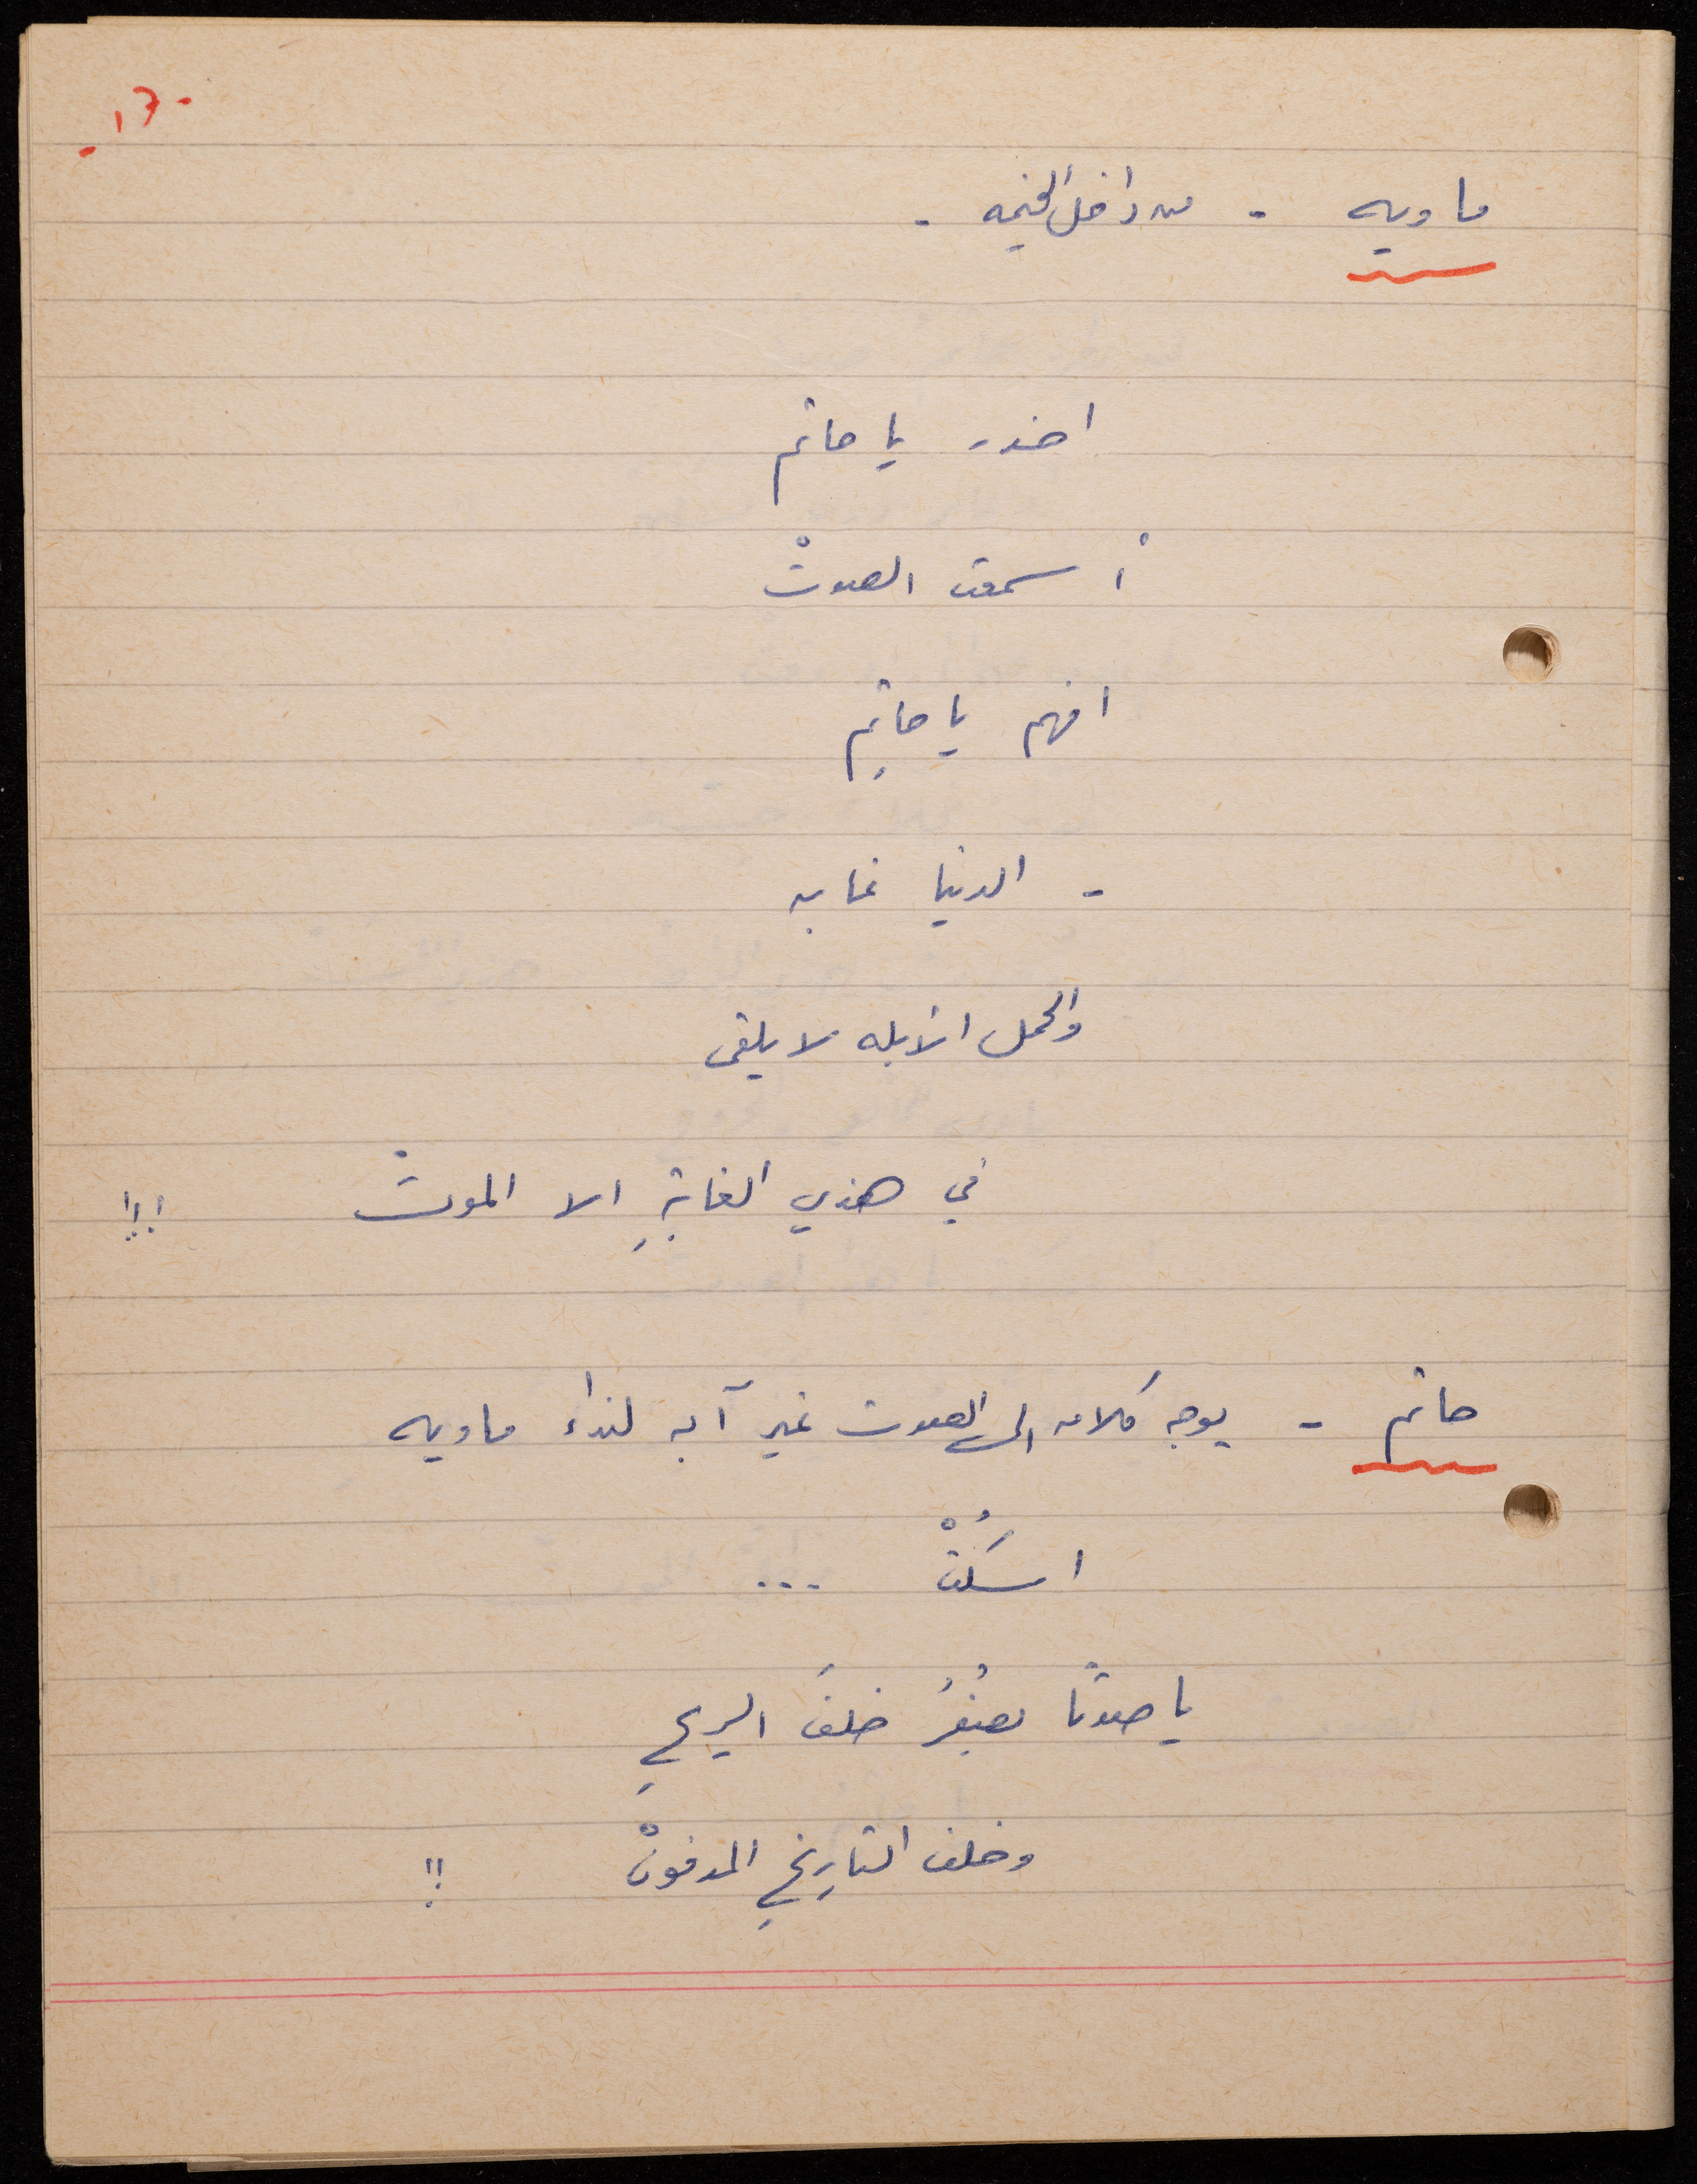 - ١٣ -
ماويه - من داخل الخيمه -
احذر يا حاتم
أسمعت الصوتْ
افهم يا حاتِم
- الدنيا غابه
والحمل الأبله لا يلقى
في هذي الغابةِ الا الموتْ !!!
حاتم - يوجه كلامه الى الصوت غير آبه لنداء ماويه
اسكُتْ ...
يا صوتًا يصفُرُ خلفَ الريحِ
وخلف التاريخِ المدفونْ !!